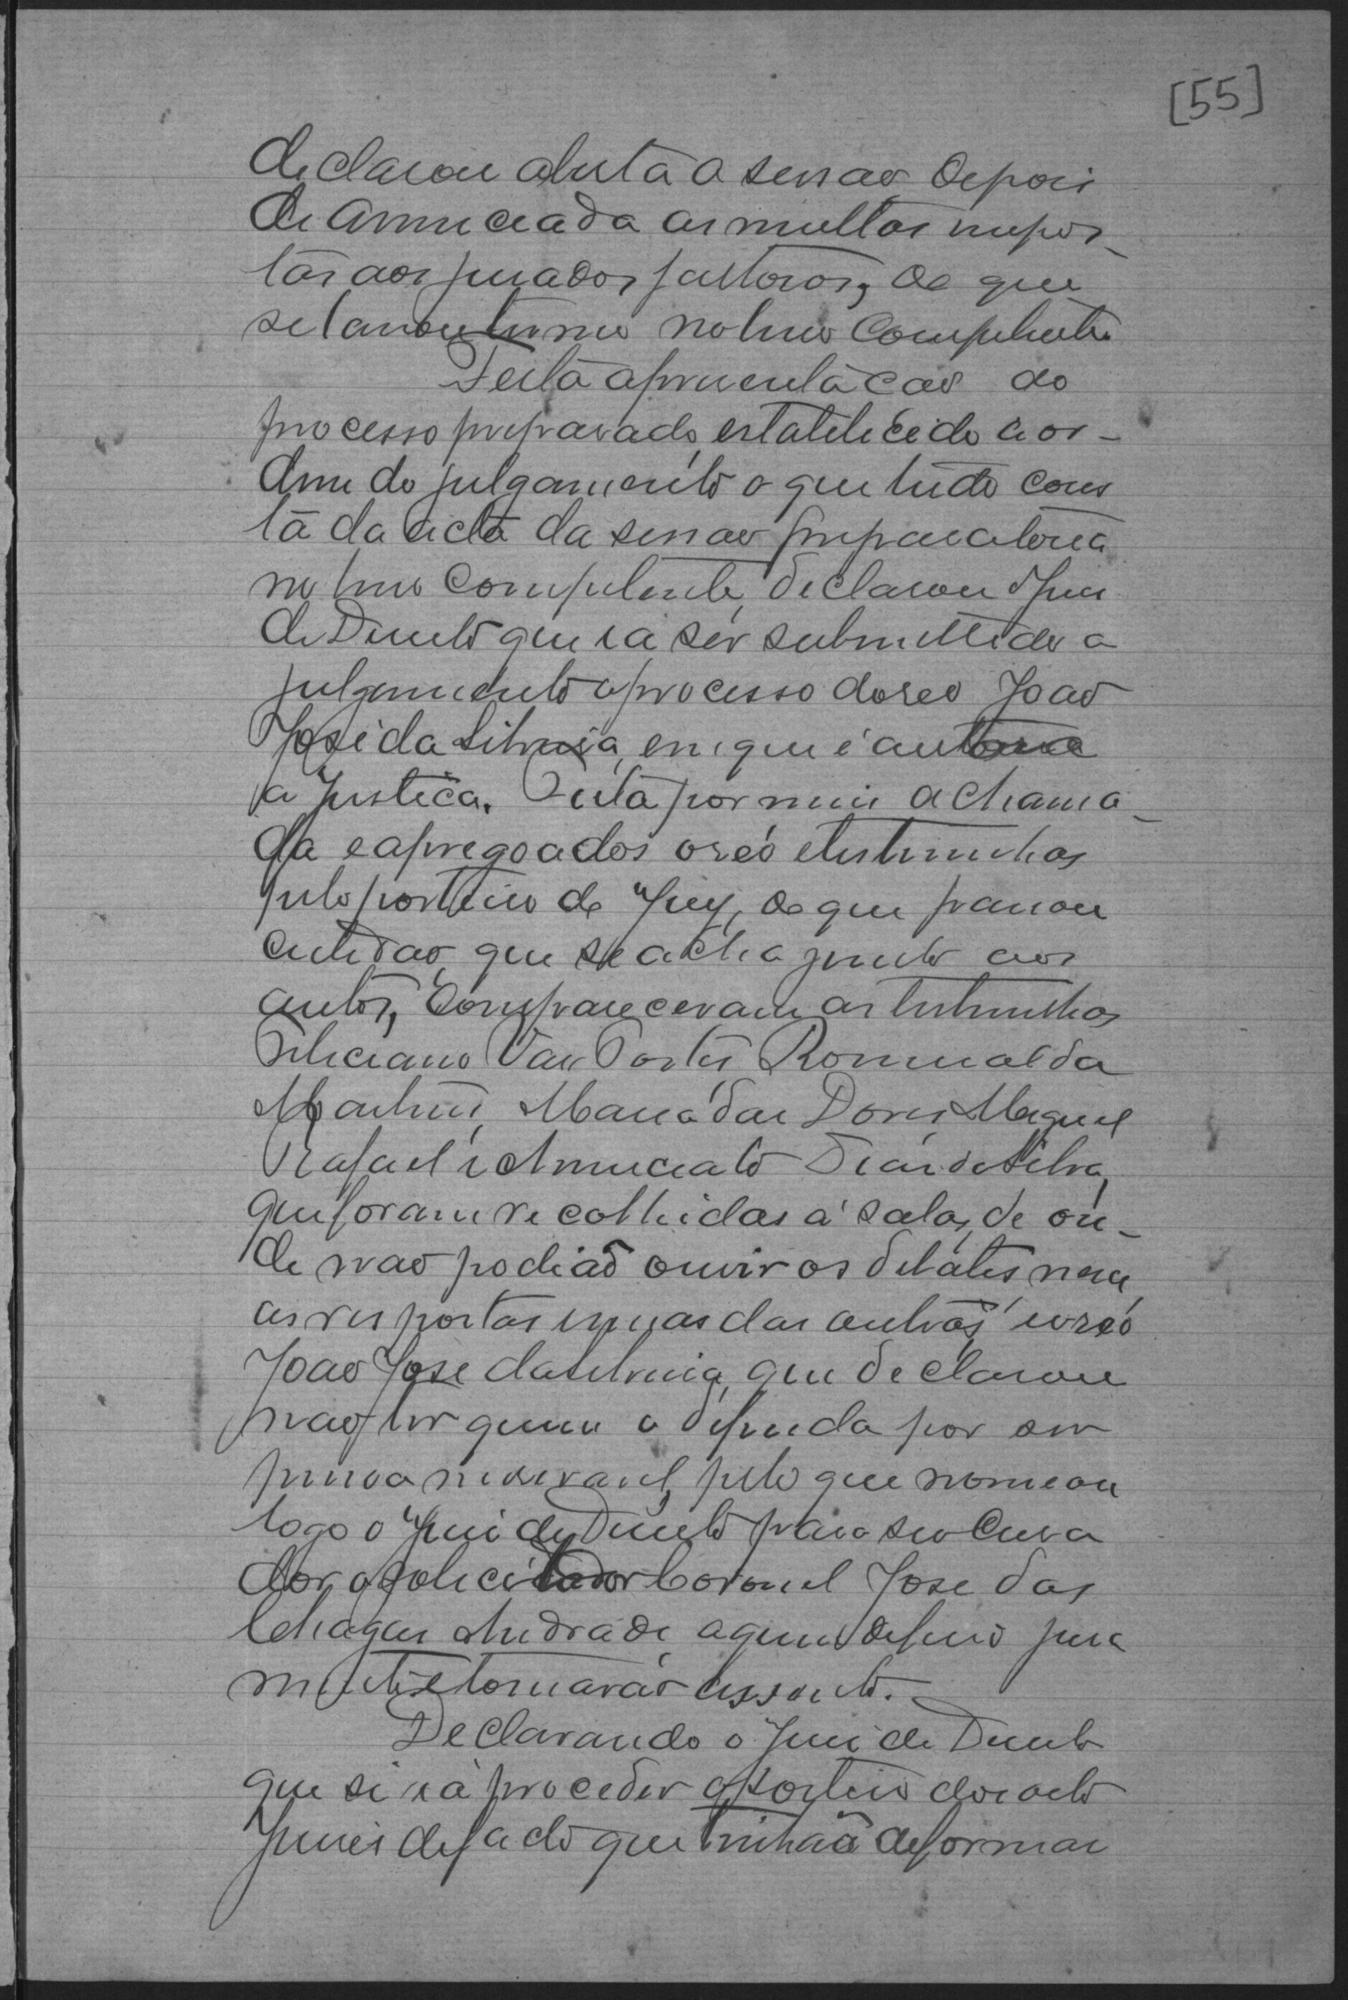 [55]
declarou aberta a sessao depois
de annunciada as multas impos-
tas aos jurados faltosos, de que
se lavrou termo no livro Competente.
Feita apresentacao do
processo preparado, estabelecido a or-
dem do julgamento o que tudo cons
ta da acta da sessao preparatoria
no livro Competente, declarou o Juiz
de Direito que ia ser submettido a
julgamento o processo do reo Joao
José da Silveira, em que é autora
a Justica. Feita por mim a chama-
da e apregoados o reó e testemunhas
pelo porteiro de Jury, de que passou
certidao, que se acha junto aos
autos, Compareceram as testemunhas
Feliciano Vas Portes Romualda
Martins, Maria das Dores Miguel
Rafael e Annunciato Dias da Silva,
que foram recolhidas á salas, de on-
de nao podiaõ ouvir os debates nem
as respostas umas das outras, e o reó
Joao José da Silveira, que declarou
nao ter quem o defenda por ser
pessoa miseravel, pelo que nomeou
logo o Juiz de Direito para seo Cura
dor o solicitador Coronel José das
Chagas Andrade a quem deferio jura
mento e tomaraó assento.
Declarando o Juiz de Direito
que si ia proceder o sorteio dos oito
Juizes de facto que tinhaõ de formar